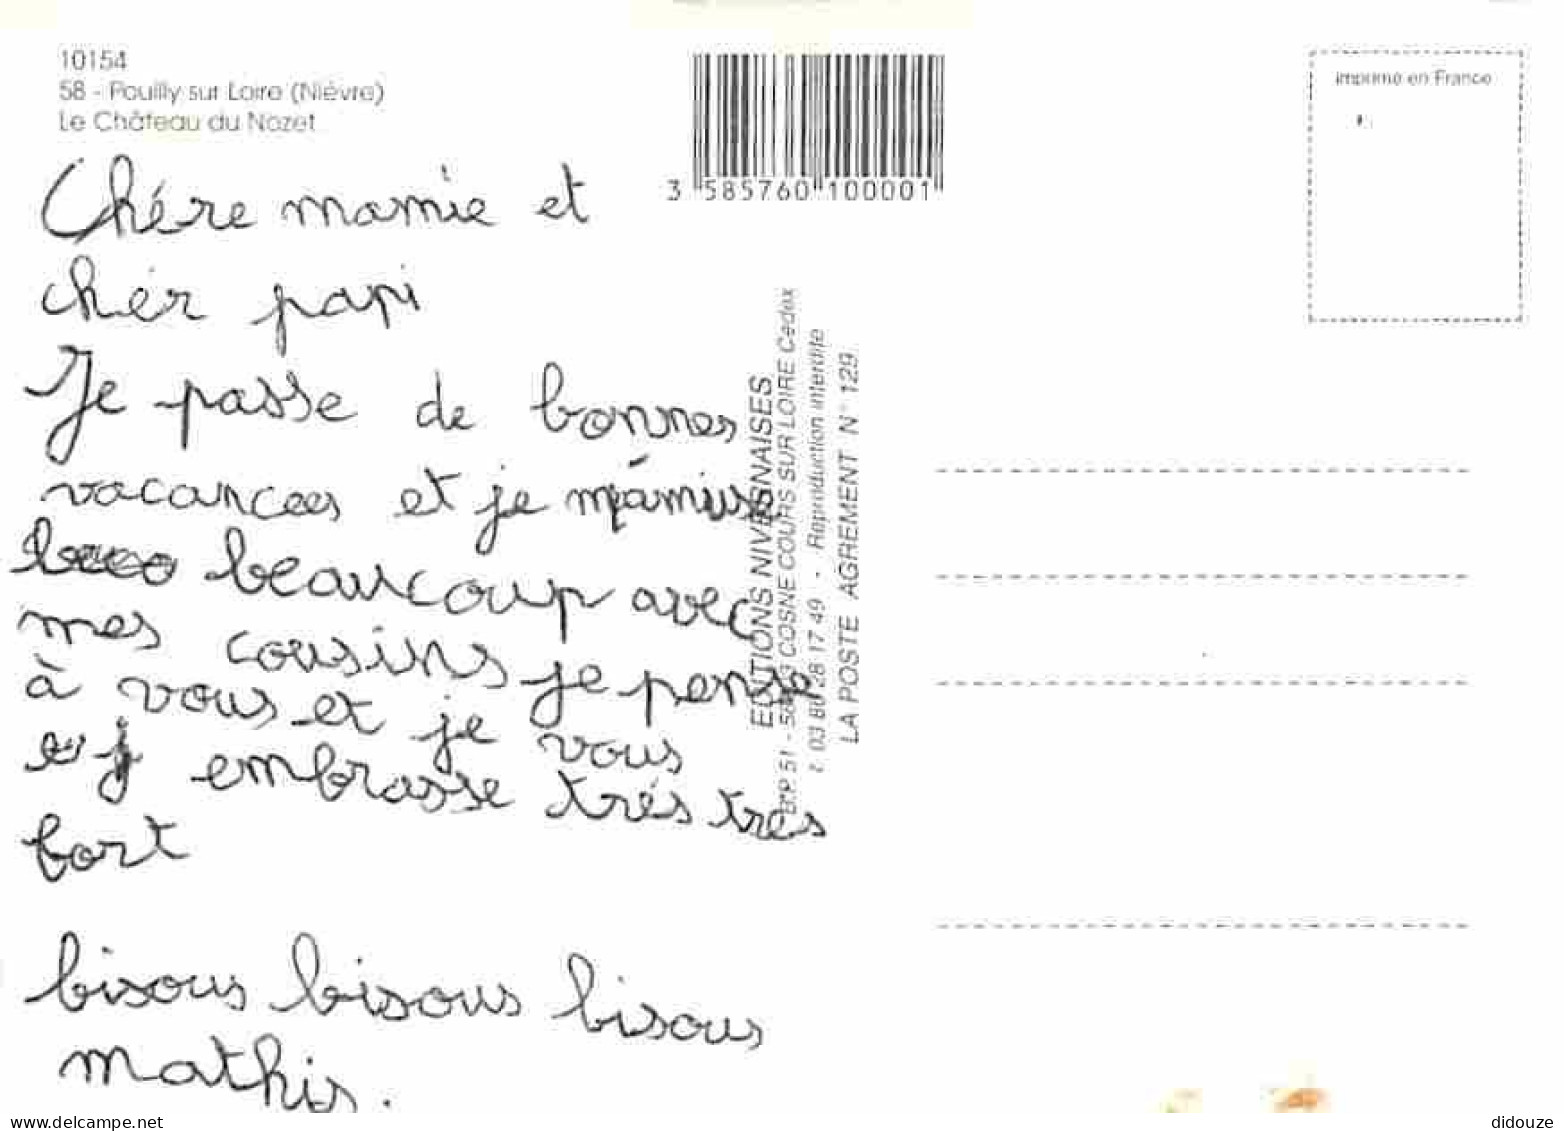 10154
58 - Pouilly sur Loire (Nièvre)
Le Château du Nozet
3 585760 100001
imprimé en France
Chére mamie et
chér papi
Je passe de bonnes
vacances et je m'amuse
beaucoup avec
mes cousins je pense
à vous et je vous
embrasse trés tres
fort
bisous bisous bisous
mathis.
EDITIONS NIVERNAISES
B.P. 51 - COSNE COURS SUR LOIRE Cedex
03 86 28 17 49 - Reproduction interdite
LA POSTE AGREMENT N° 129
www.delcampe.net
didouze